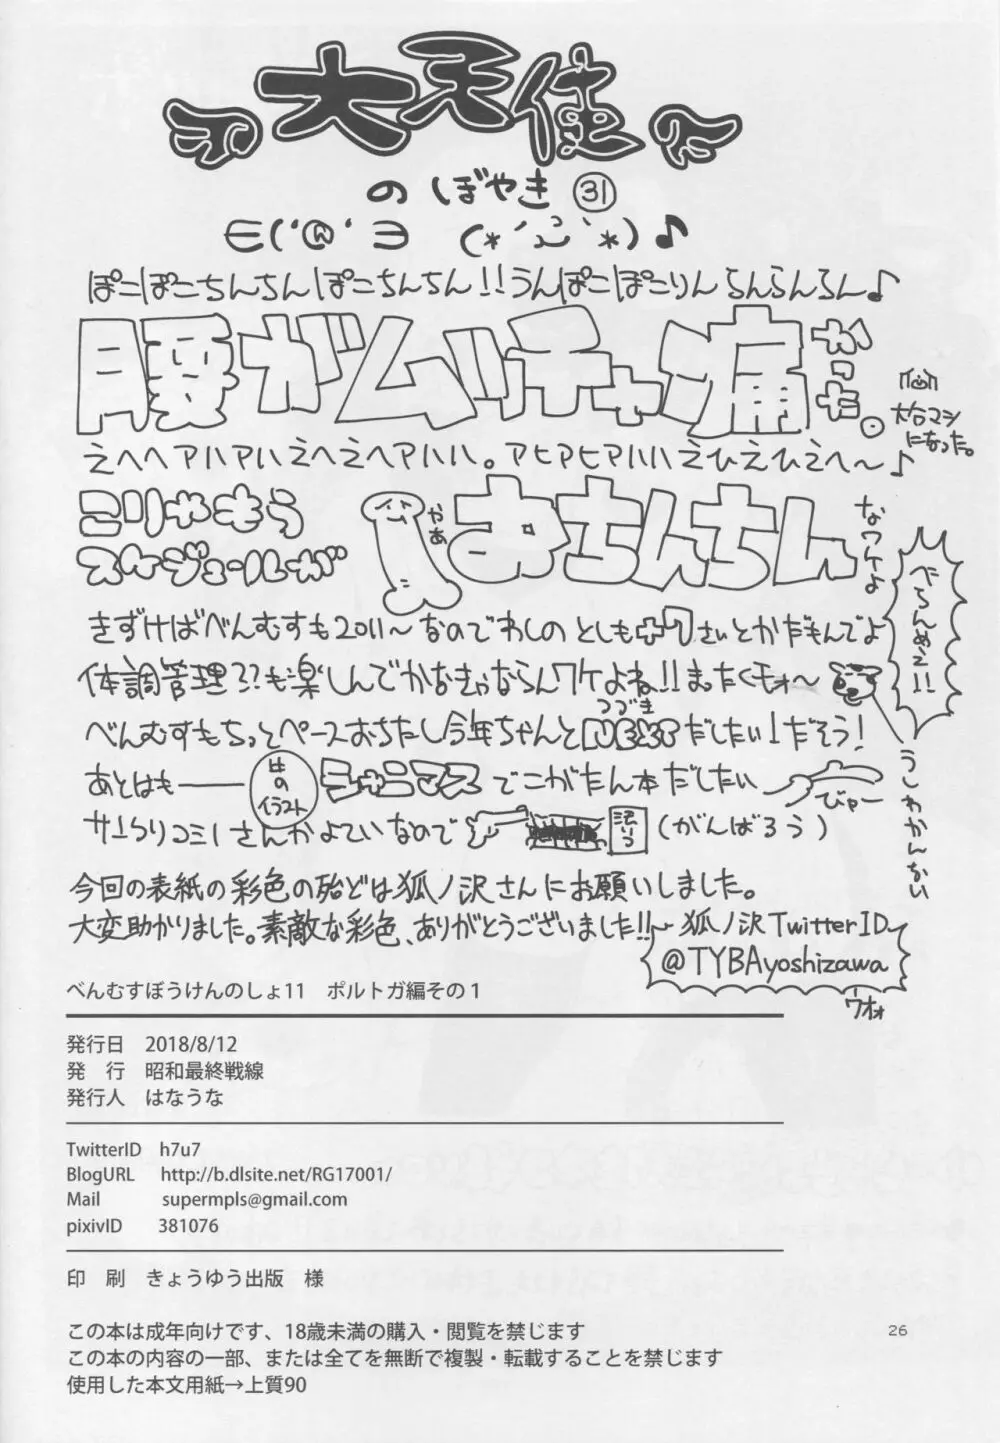 大天使
のぼやき ㉛
∈('@'∋ (*´ `*)♪
ぽこぽこちんちんぽこちんちん!!うんぽこぽこりんらんらんらん♪
腰がムッチャ痛かった。
大分マシになった。
えへへアハアハえへえへアハハハ。アヒアヒアハハえひえひえへ〜♪
こりゃもう
スケジュールが
やあ
おちんちん
なワケよ
べらんめえ!!
きずけばべんむすも2011〜なのでわしのとしも
さいとかだもんでよ
体調管理??も楽しんでかなきゃならんワケよね!!まったくモォ〜
うしわかんない
つづき
べんむすもちっとペースおちたし今年ちゃんとNEXTだしたい!だそう!
あとはも──
イラスト
シャニマスでこがたん本だしたい
びゃー
なので
(がんばろう)
今回の表紙の彩色の殆どは狐ノ沢さんにお願いしました。
大変助かりました。素敵な彩色、ありがとうございました!!
狐ノ沢TwitterID
@TYBAyoshizawa
ワオォ
べんむすぼうけんのしょ11 ポルトガ編その1
発行日 2018/8/12
発 行 昭和最終戦線
発行人 はなうな
TwitterID h7u7
BlogURL http://b.dlsite.net/RG17001/
Mail supermpls@gmail.com
pixivID 381076
印 刷 きょうゆう出版 様
この本は成年向けです、18歳未満の購入・閲覧を禁じます
この本の内容の一部、または全てを無断で複製・転載することを禁じます
使用した本文用紙→上質90
26